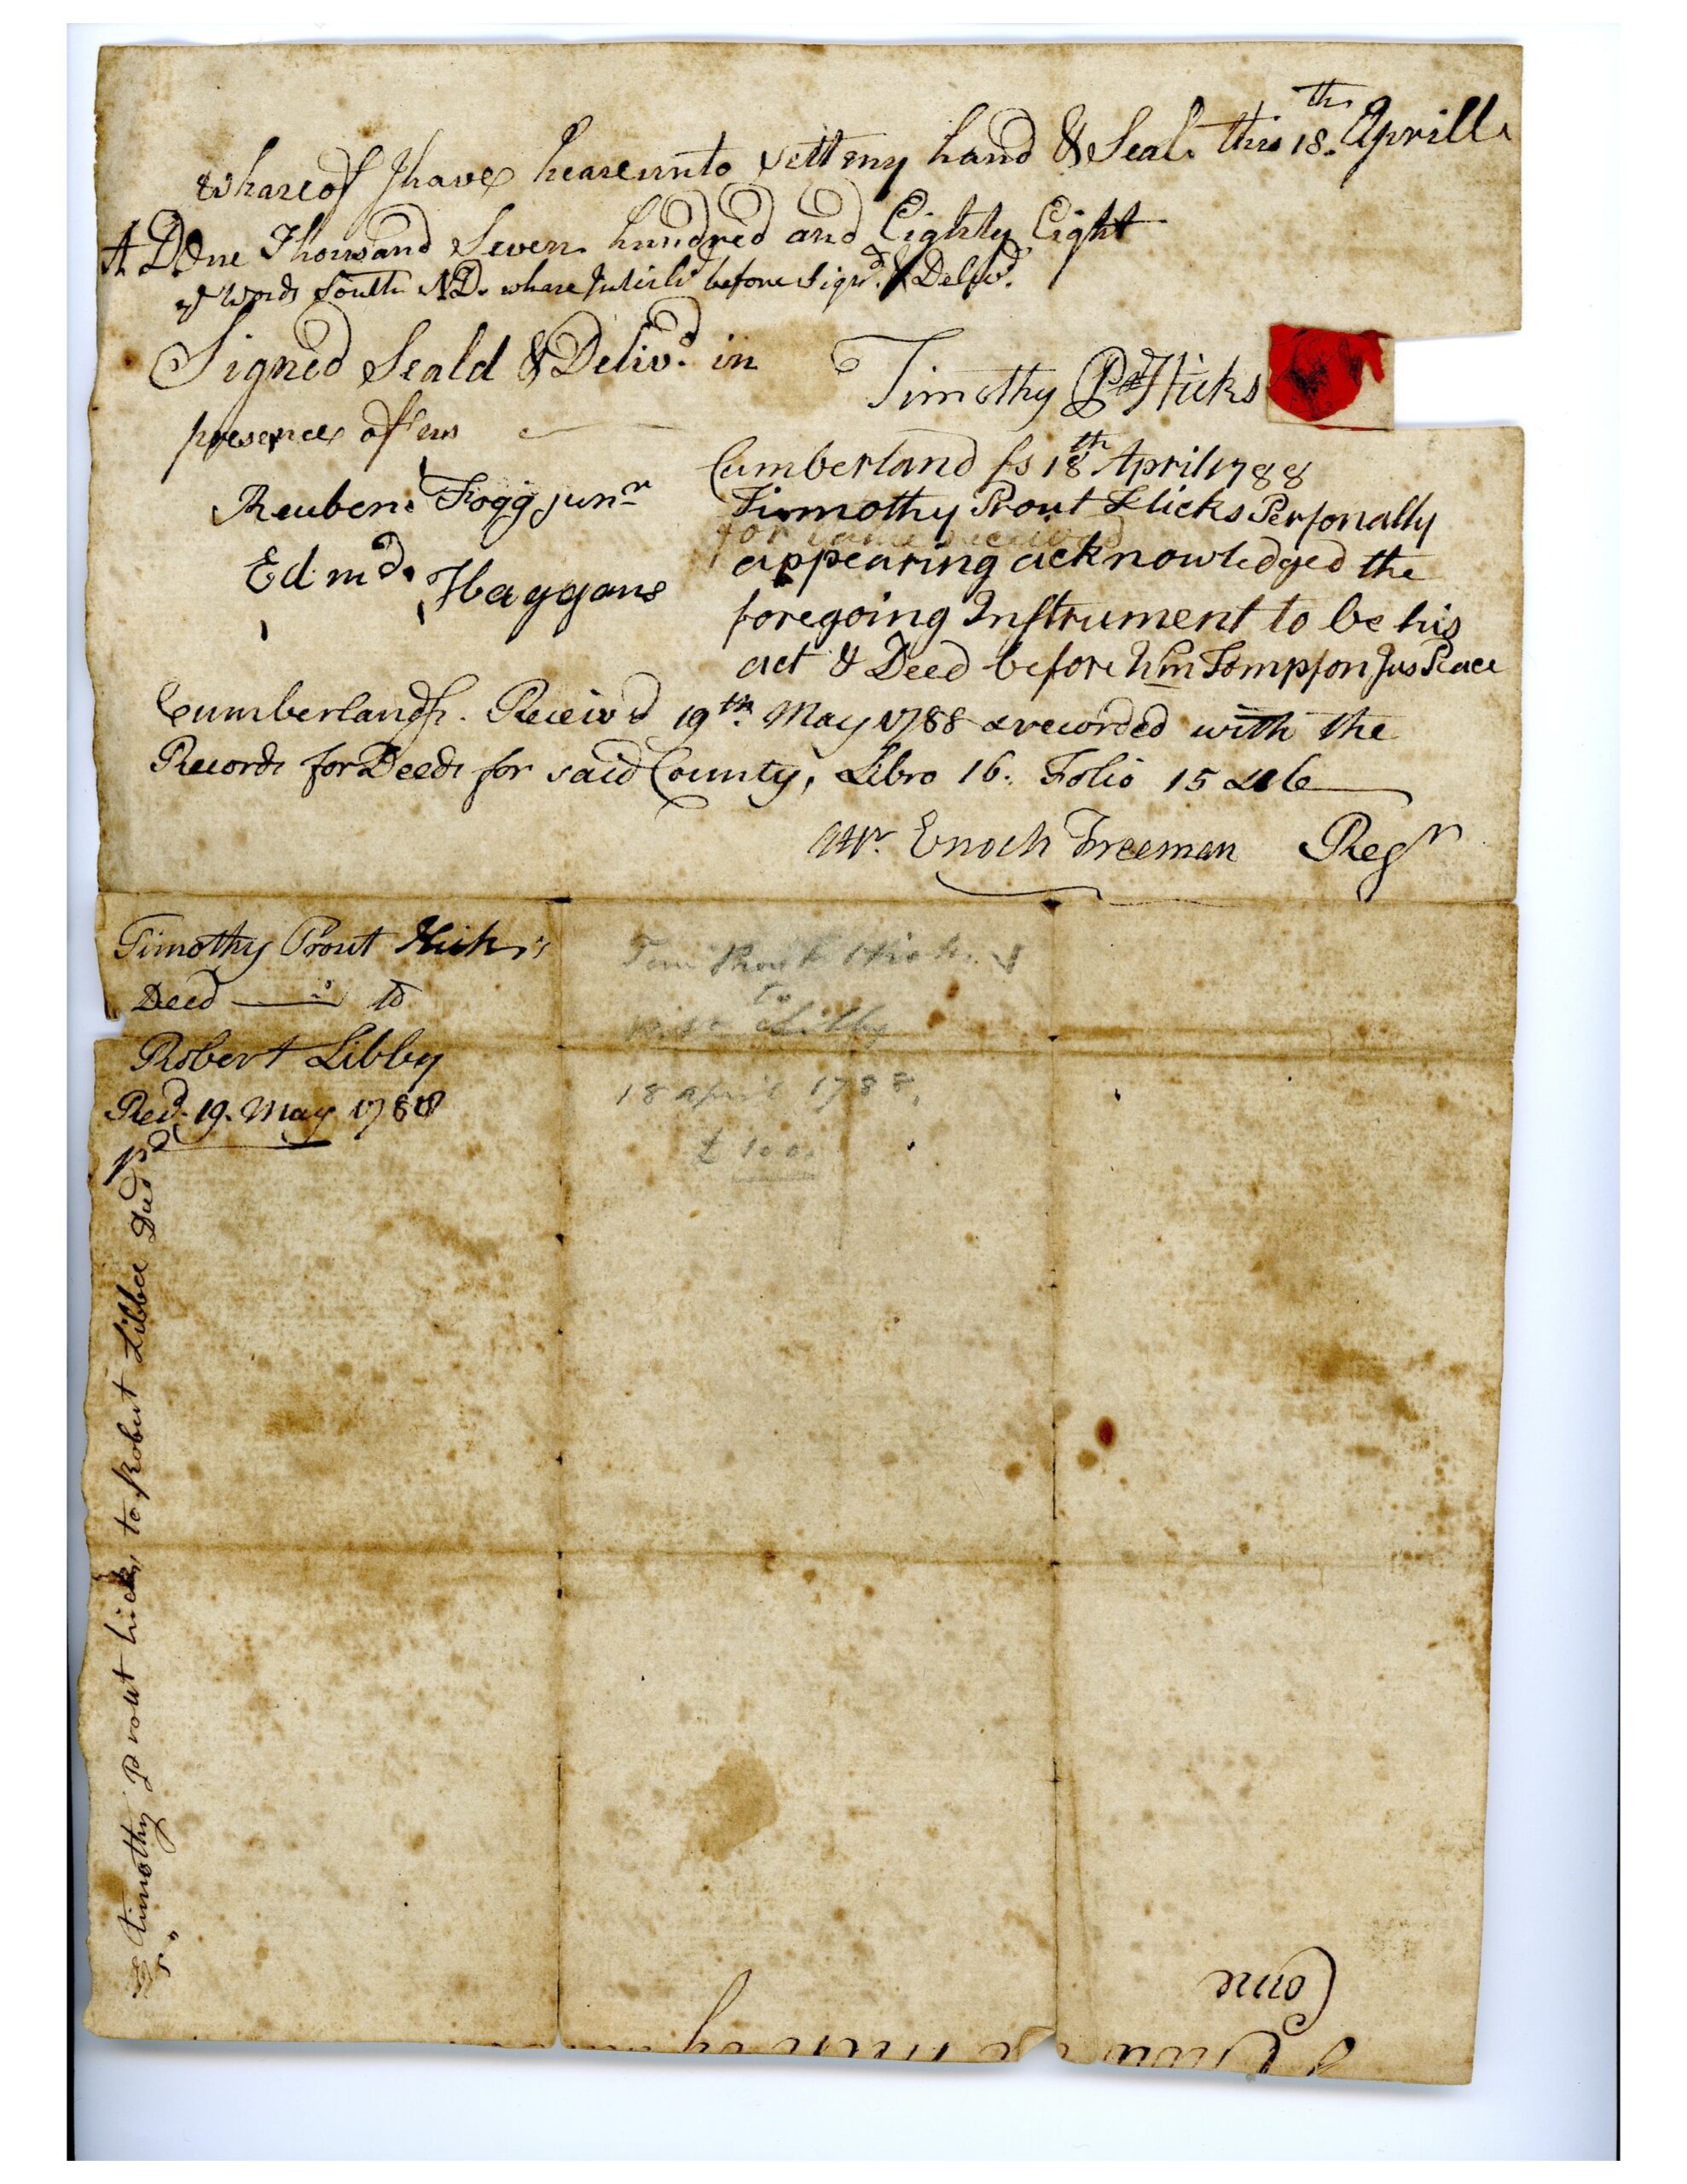 whareof I have heareunto sett my hand & Seal. this 18.th Aprill
A D One Thousand Seven hundred and Eighty Eight
ye Words South ND. whare Interlid before Signd. & Delivd.
Signed Seald & Delivd. in
presence off us
Timothy Pt Hicks
Reuben Fogg junr
Edmd. Haggans
Cumberland ss 18th April 1788
Timmothy Prout Hicks Personally
appearing acknowledged the
foregoing Instrument to be his
act & Deed before Wm Tompson Jus Peace
Cumberland ss. Receivd 19th. May 1788 & recorded with the
Records for Deeds for said County, Libro 16. Folio 15 &16
Attr. Enoch Freeman Regr
Timothy Prout Hicks's
Deed to
Robert Libby
Recd. 19. May 1788
pd
timothy prout hicks to Robert Libbee Deed
Tim Prout Hicks
to
Libby
18 april 1788.
£ 100.
Come